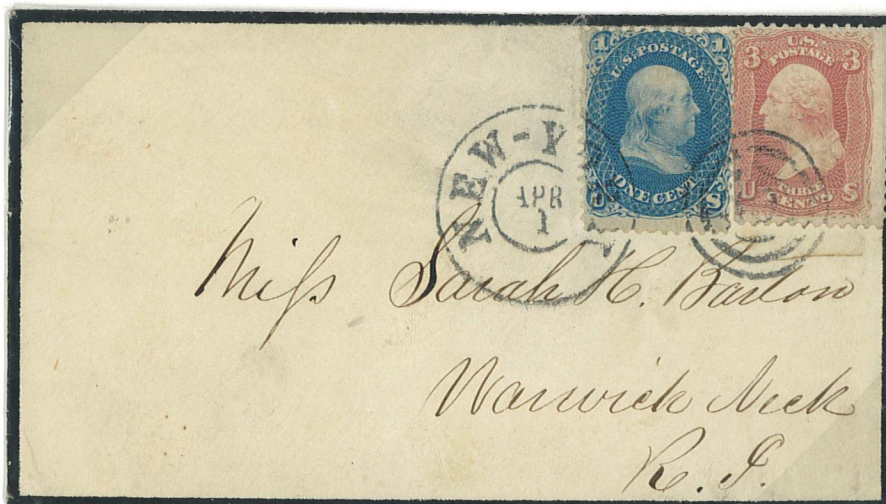 1 1
U.S. POSTAGE
ONE CENT
U S
3 3
U.S.
POSTAGE
THREE
CENTS
U S
NEW-Y
APR
1
Miſs Sarah H. Barton
Warwick Neck
R. I.